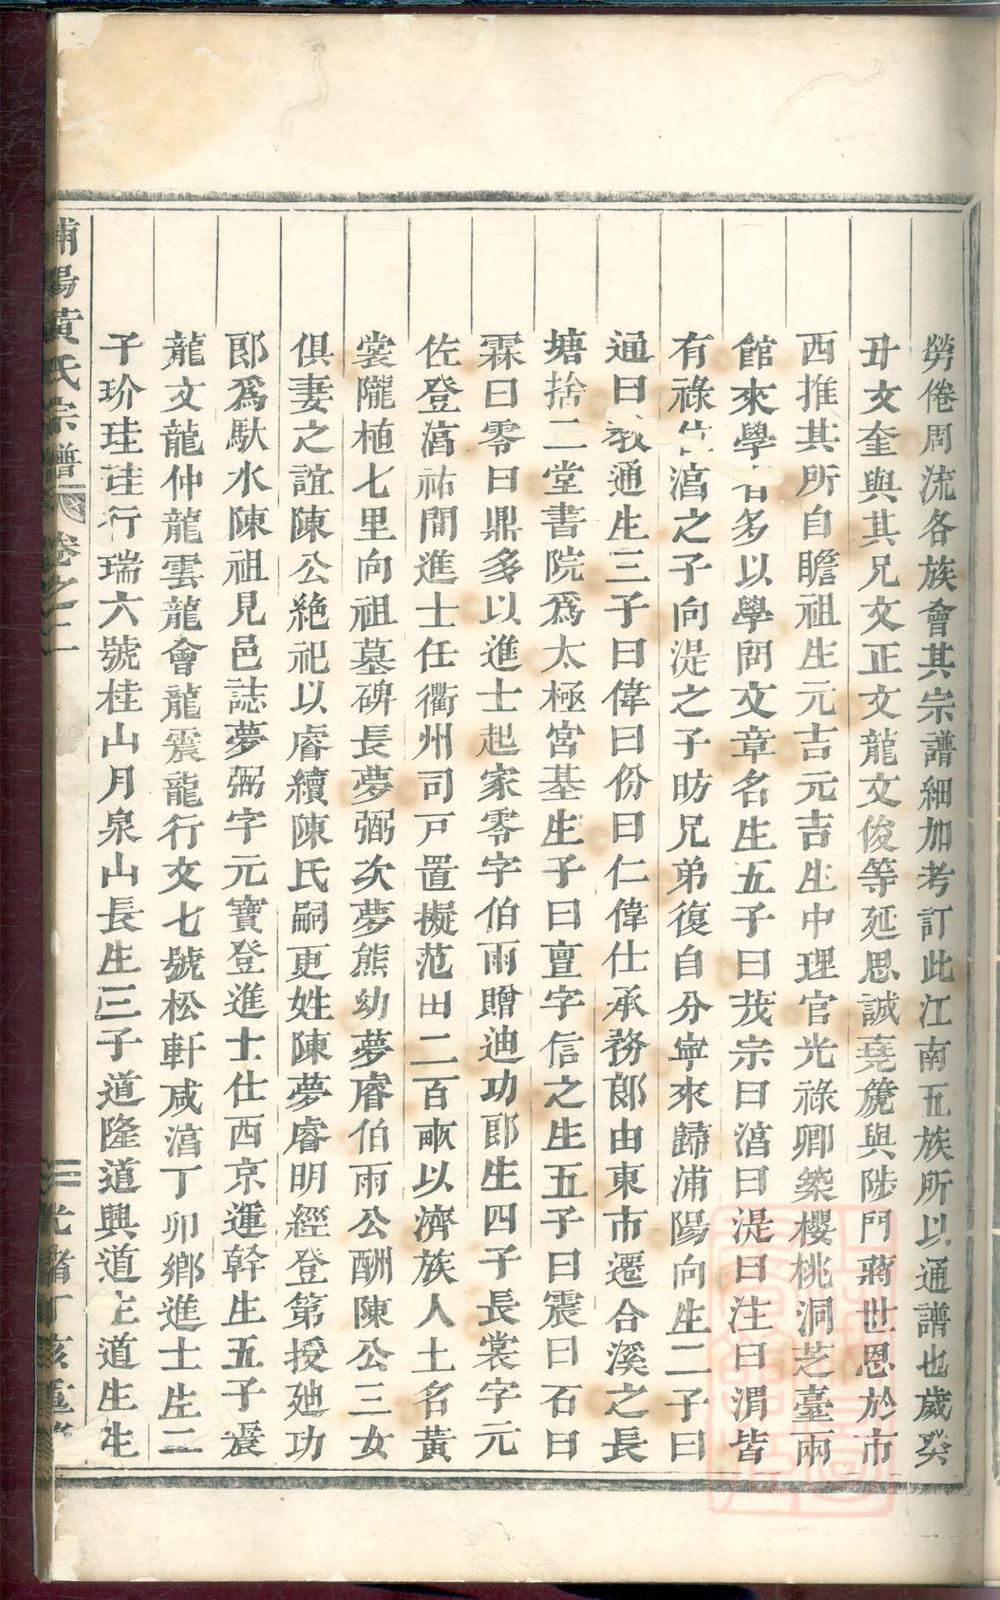 勞倦周流各族會其宗譜細加考訂此江南五族所以通譜也歲癸
丑文奎與其兄文正文龍文俊等延思誠堯簏與陟門蔣世恩於市
西推其所自瞻祖生元吉元吉生中理官光祿卿築櫻桃洞芝臺兩
館來學者多以學問文章名生五子曰茂宗曰滈曰湜曰注曰渭皆
有祿仕滈之子向湜之子昉兄弟復自分寧來歸浦陽向生二子曰
通曰敎通生三子曰偉曰份曰仁偉仕承務郎由東市遷合溪之長
塘捨二堂書院爲太極宮基生子曰亶字信之生五子曰震曰石曰
霖曰零曰鼎多以進士起家零字伯雨贈迪功郎生四子長裳字元
佐登滈祐間進士任衢州司戸置擬范田二百畝以濟族人土名黃
裳隴植七里向祖墓碑長夢弼次夢熊幼夢睿伯雨公酬陳公三女
俱妻之誼陳公絶祀以睿續陳氏嗣更姓陳夢睿明經登第授廸功
郎爲馱水陳祖見邑誌夢弼字元寶登進士仕西京運幹生五子震
龍文龍仲龍雲龍會龍震龍行文七號松軒咸滈丁卯鄉進士生二
子玠珪珪行瑞六號桂山月泉山長生三子道隆道興道生道生生
浦陽黃氏宗譜 卷之二 二 光緖丁亥重修